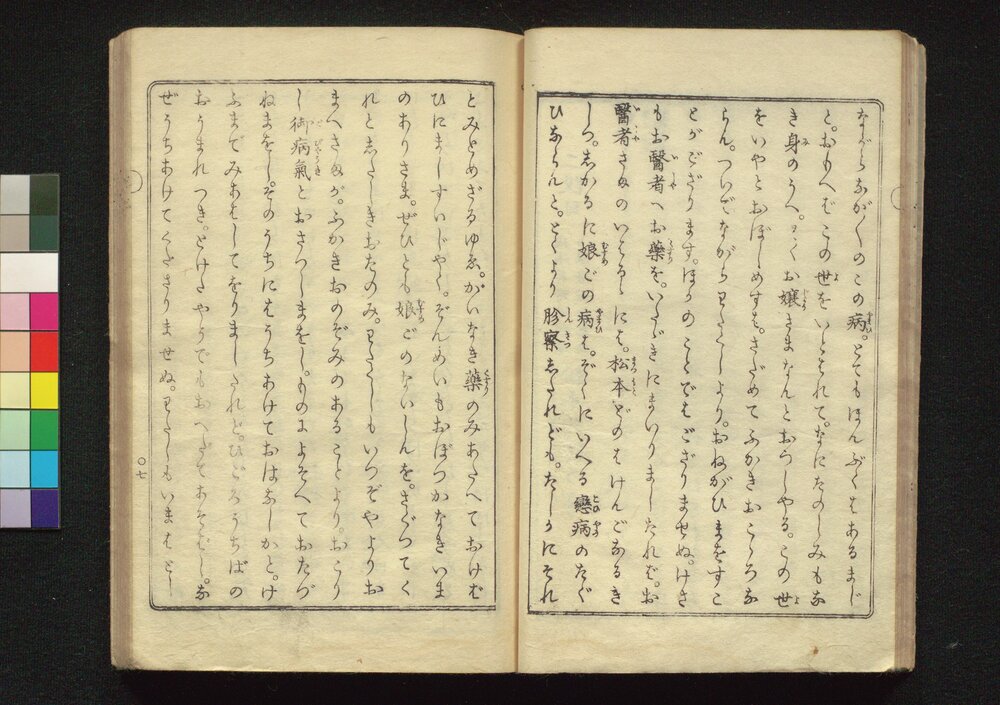 ながらながくのこの病。とてもほんぶくはあるまじ
と。おもへばこの世をいとはれて。なにたのしみもな
き身のうへ。とくお嬢さまなんとおつしやる。この世
をいやとおぼしめすは。さだめてふかきおこゝろな
らん。ついでながらわたくしより。おねがひまをすこ
とがござります。ほかのことではござりませぬ。けさ
もお醫者へお藥を。いたゞきにまいりましたれば。お
醫者さまのいはるゝには。松本どのはけんごなるき
しつ。しかるに娘ごの病は。ぞくにいへる戀病のたぐ
ひならんと。とくより胗察したれども。たしかにそれ
とみとめざるゆゑ。がいなき藥のみあたへておけど
ひにましすいじやく。ぞんめいもおぼつかなきいま
のありさま。ぜひとも娘ごのないしんを。さぐつてく
れとしたしきおたのみ。わたくしもいつぞやよりお
まへさまが。ふかきおのぞみのあることより。おこり
し御病氣とおさつしまをし。ものによそへておたづ
ねまをし。そのうちにはうちあけておはなしかと。け
ふまでみあはしてをりましたれど。ひごろうちばの
おうまれつき。とけたやうでもおへだてあそばし。な
ぜうちあけてくださりませぬ。わたくしもいまはとし
〇七